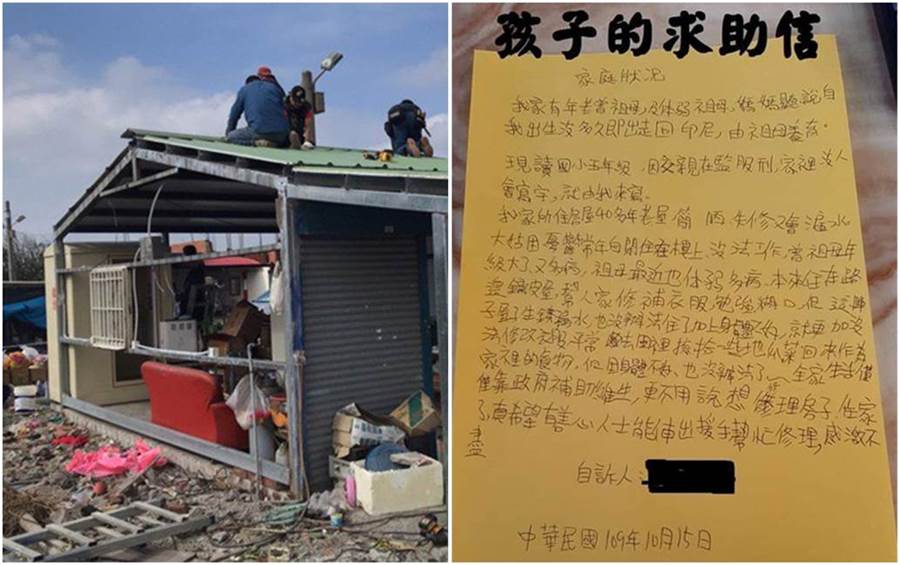 孩子的求助信
家庭狀況
我家有年老曾祖母,及体弱祖母,媽媽聽說自
我出生沒多久即出走回印尼,由祖母養育。
現讀國小五年級,因父親在監服刑,家裡沒人
會寫字,就由我來寫。
我家所住房屋40多年老屋簡陋失修又會漏水
大姑因憂鬱常年自閉住在樓上,沒法工作,曾祖母年
級大了,又多病,祖母最近也体弱多病.本來住在路
邊鐵皮屋,幫人家修補衣服勉強糊口,但這陣
子屋子生鏽漏水也沒辦法住了加上身體不好,就更加沒
法修改衣服平常去田裡撿拾一些地瓜菜回來作為
家裡的食物,但因身體不好,也沒辦法了~全家生活僅
僅靠政府補助維生,更不用說想修理房子.住家
了,真希望有善心人士能伸出援手幫忙修理,感激不
盡
自訴人:
中華民國109年10月15日